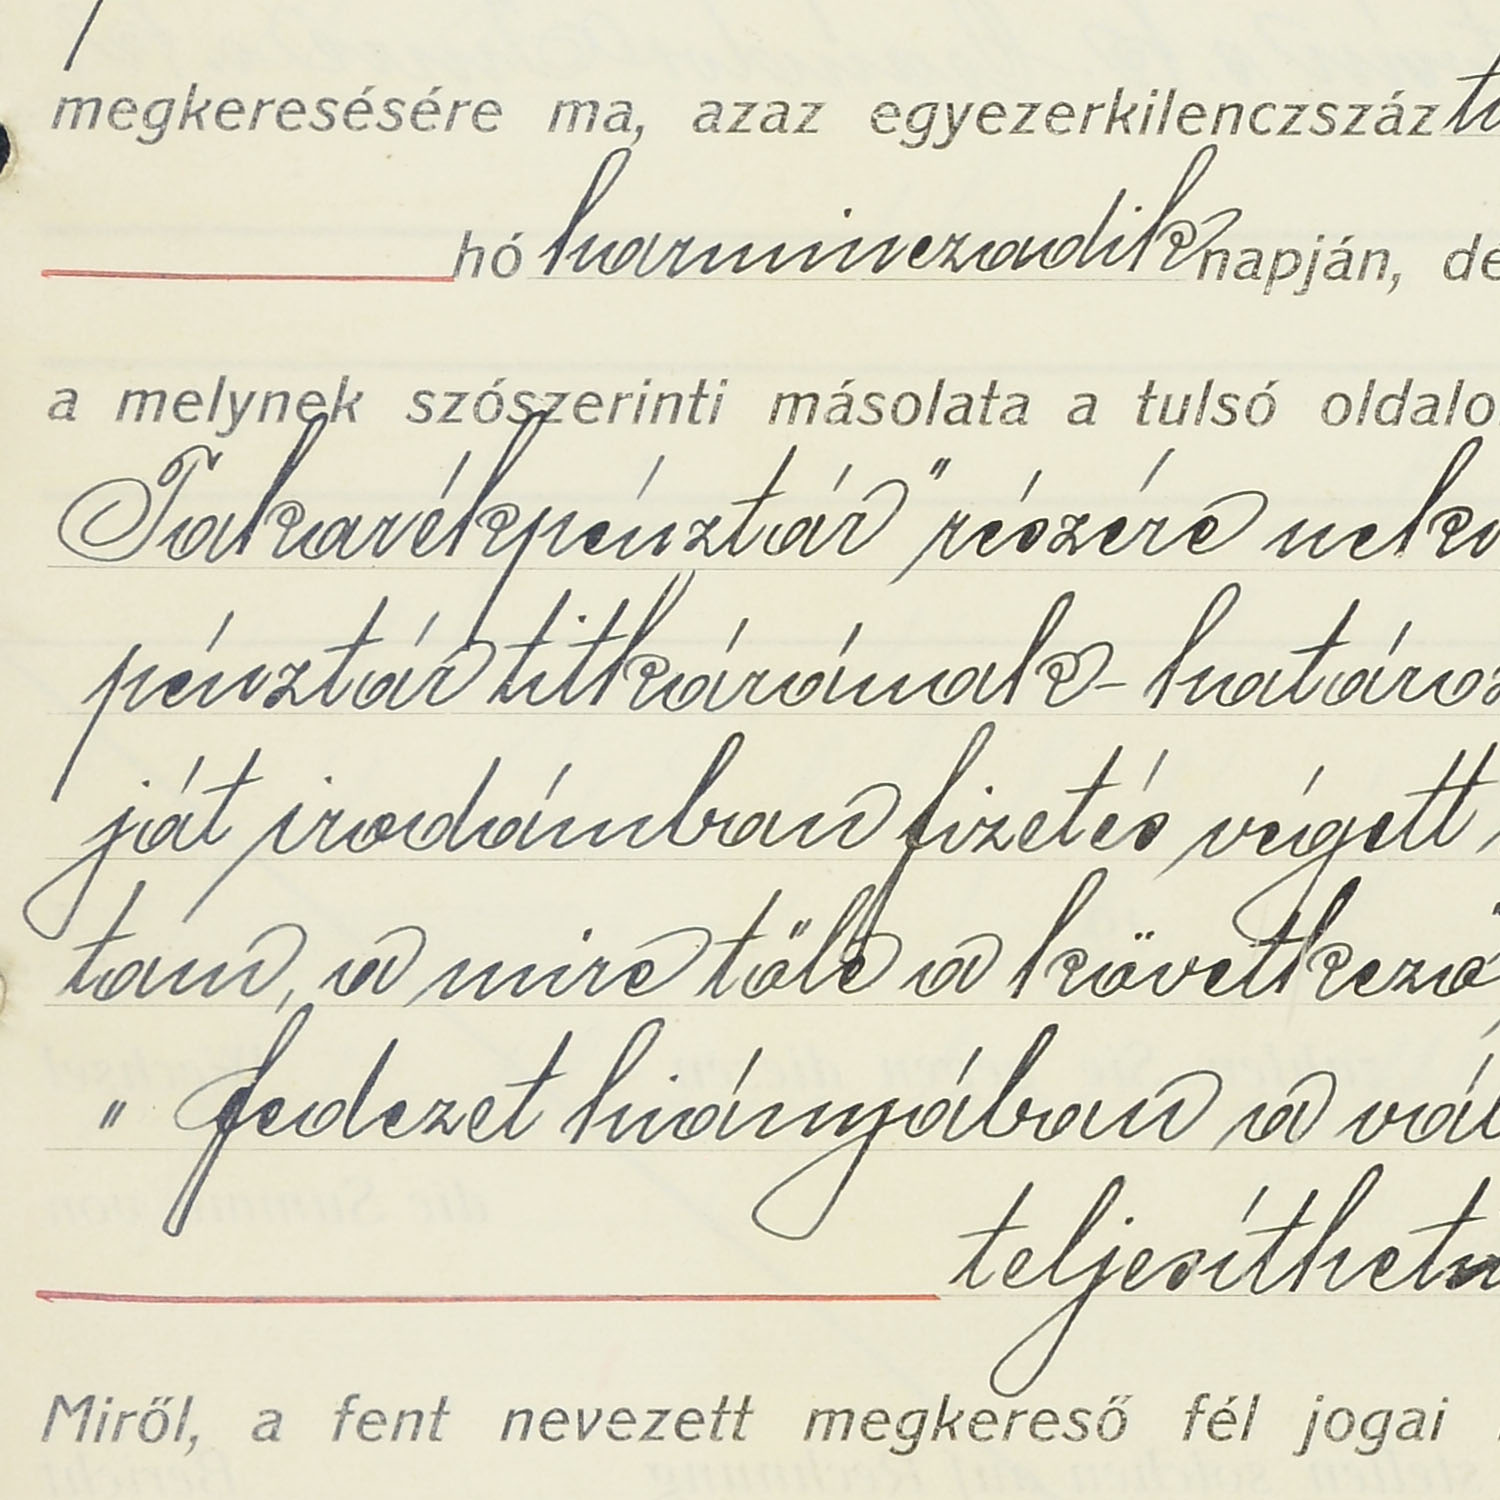 megkeresésére ma, azaz egyezerkilenczszáz
hó harminczadik napján, de
a melynek szószerinti másolata a tulsó oldalo
Takarékpénztár" részére
pénztár titkárának - határoz
ját irodámban fizetés végett
tam, a mire tőle a következő
" fedezet hiányában a vál
teljesíthet
Miről, a fent nevezett megkereső fél jogai